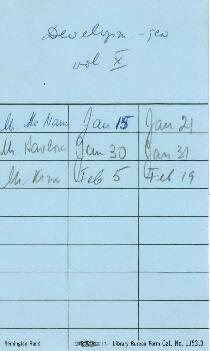 Develop - geo
vol X
Mr. Jan 15 Jan 21
Mr. Jan 30 Jan 31
Mr. Feb 5 Feb 19
Remington Rand Library Bureau Form Cat. No. 1153.3